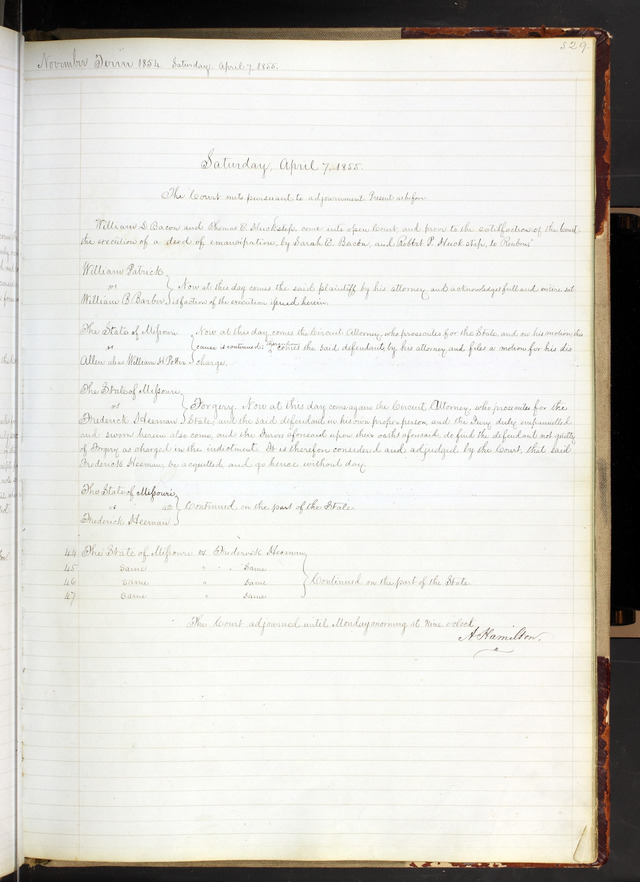 529.
November Term 1854. Saturday, April 7, 1855.
Saturday, April 7, 1855.
The Court mets pursuant to adjournment Present as before
William D. Bacon and Thomas C. Huckstep, come into open Court and prove to the satisfaction of the Court
the execution of a deed of emancipation, by Sarah E. Bacon, and Robert P. Huckstep, to Reuben.
William Patrick
vs } Now at this day comes the said plaintiff by his attorney and acknowledges full and entire sat
William B. Barber isfaction of the execution issued herein.
The State of Missouri Now at this day comes the Circuit Attorney, who prosecutes for the State, and on his motion this
vs } cause is continued; thereupon comes the said defendant, by his attorney and files a motion for his dis
Allen alias William H. Potter charge.
The State of Missouri
vs } Forgery. Now at this day come again the Circuit Attorney, who prosecutes for the
Frederick Heeman State, and the said defendant in his own proper person, and the Jury duly empannelled
and sworn herein also come, and the Jurors aforesaid upon their oaths aforesaid, do find the defendant not guilty
of Forgery as charged in the indictment. It is therefore considered and adjudged by the Court, that said
Frederick Heeman, be acquitted and go hence without day.
The State of Missouri
vs } Continued on the part of the State.
Frederick Heeman
44 The State of Missouri vs. Frederick Heeman
45 Same " " Same
46 Same " Same } Continued on the part of the State
47 Same " Same
The Court adjourned until Monday morning at nine o'clock
A. Hamilton.